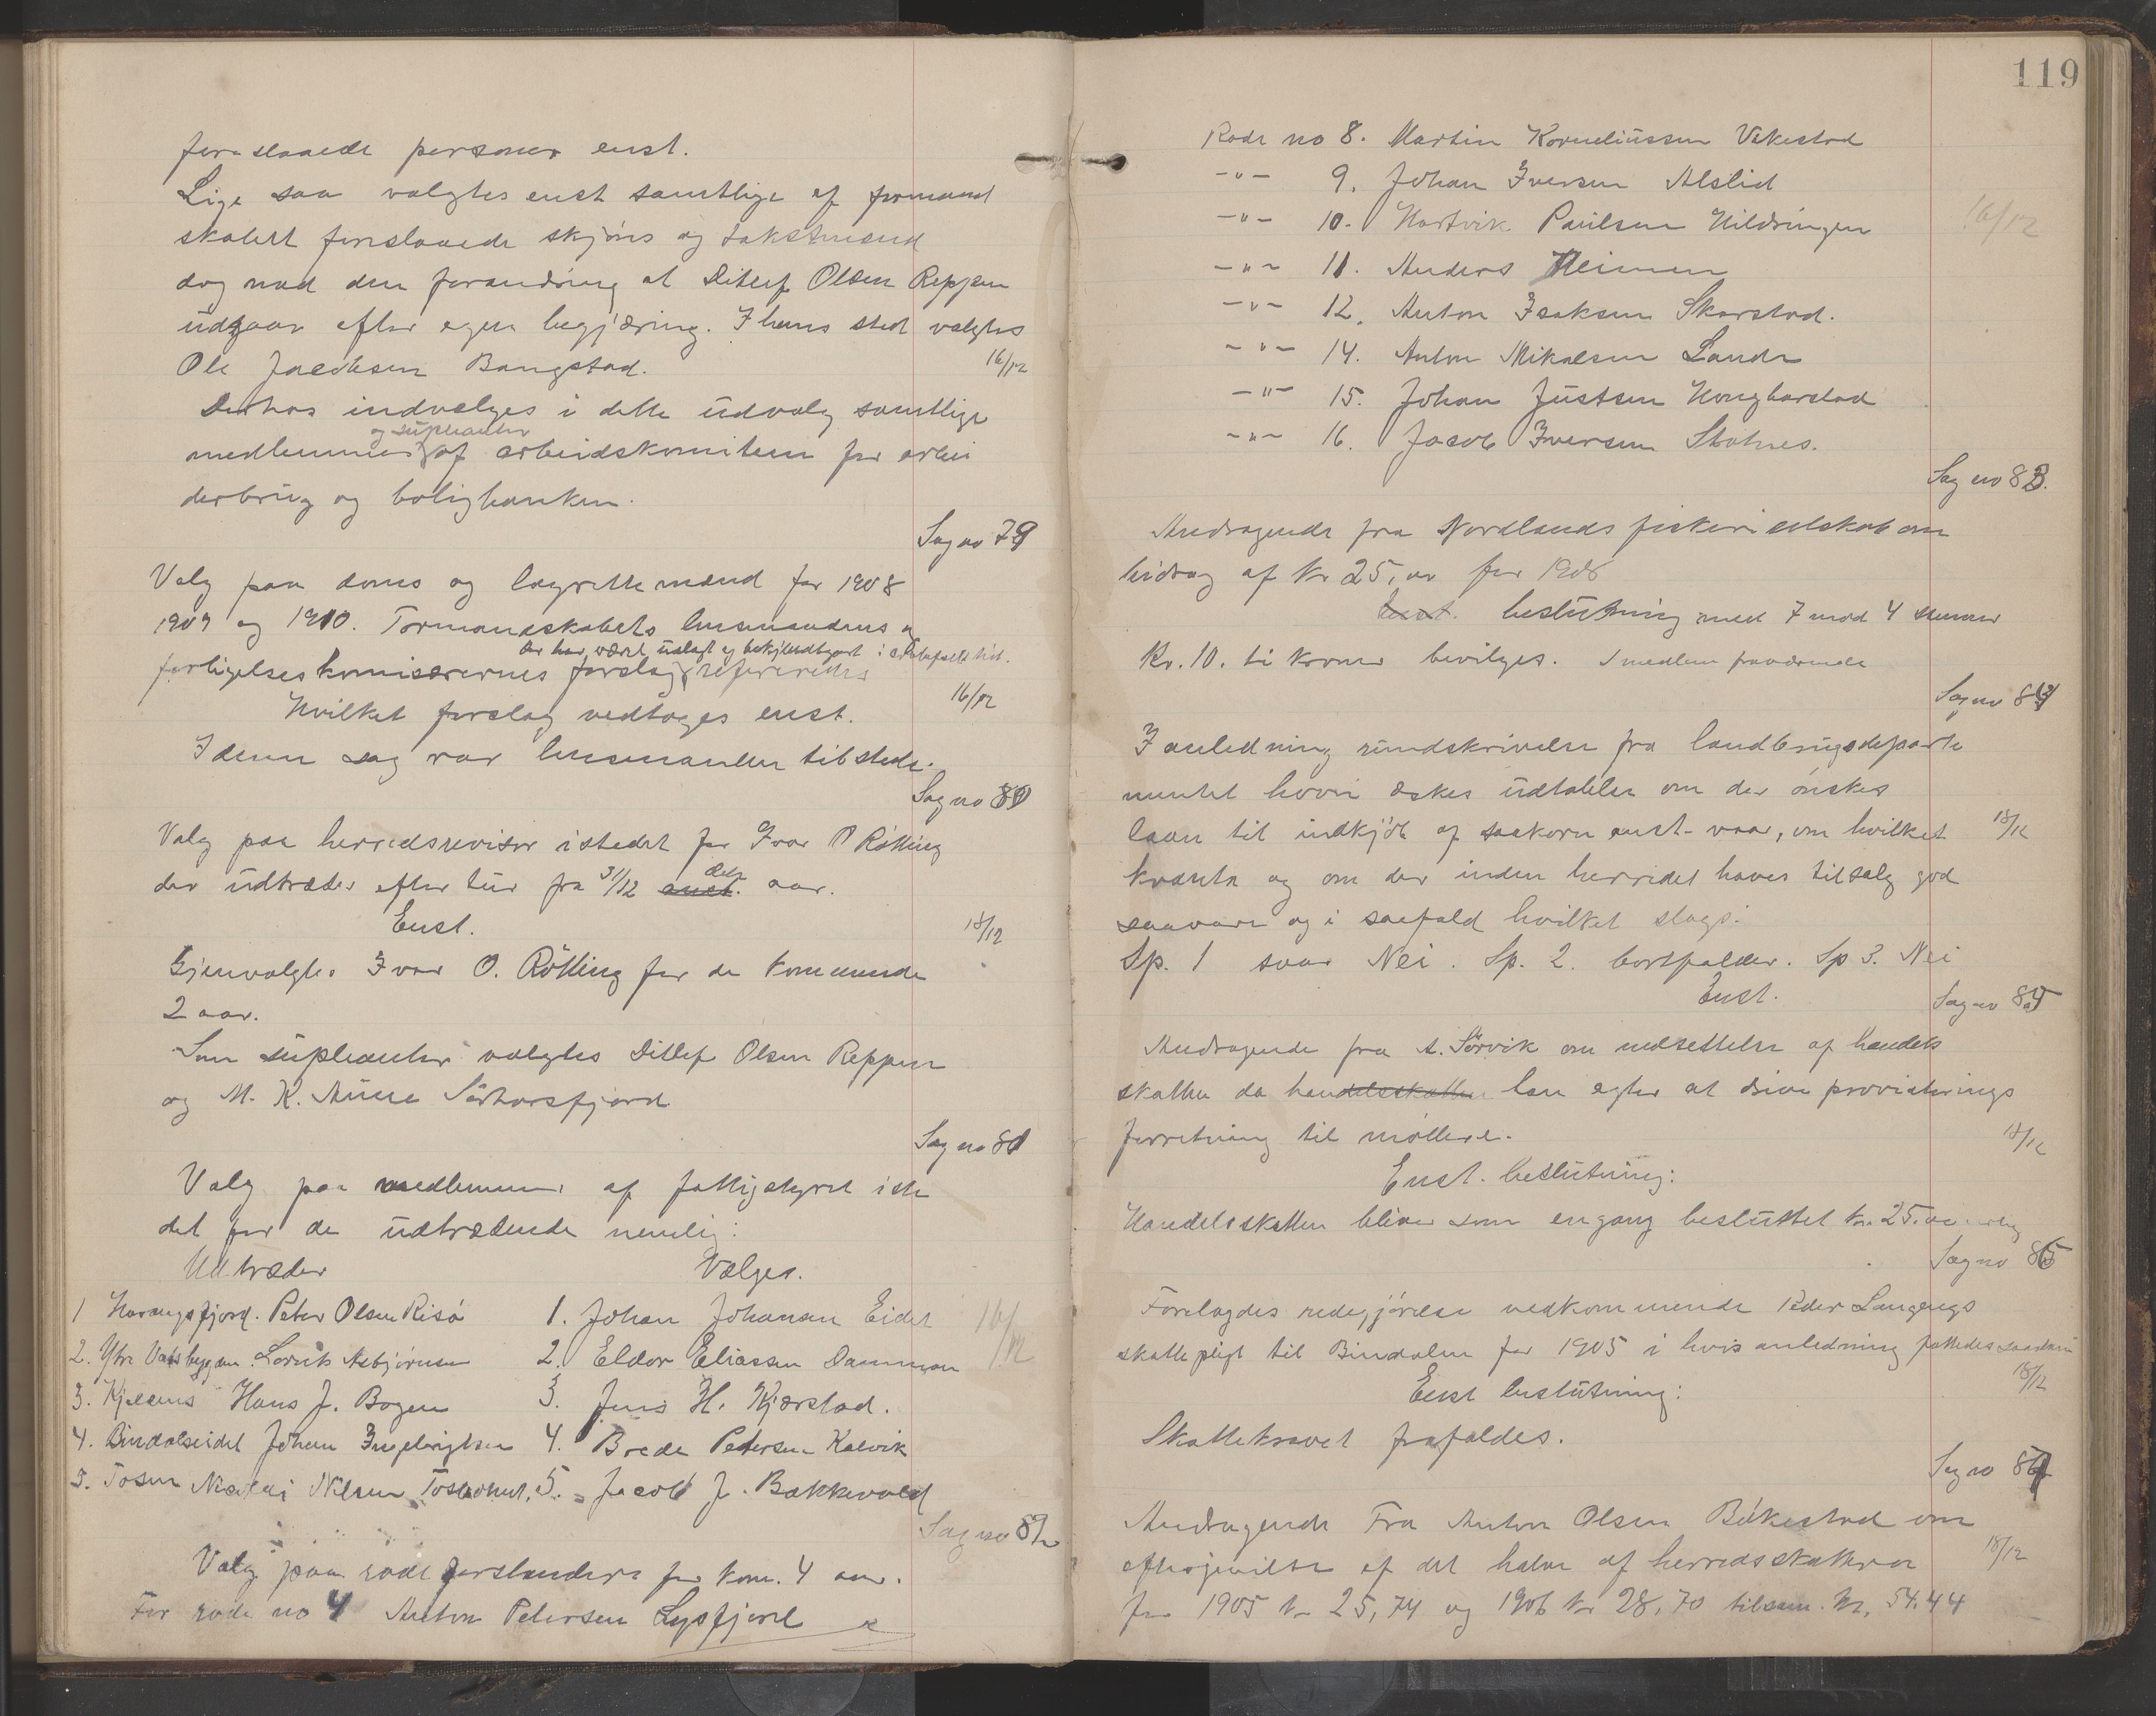 foreslaaede personer enst.
Lige saa valgtes enst samtlige af formand
skabet foreslaaede skjöns og takstmænd
dog med den forandring at Ditlef Olsen Reppen
udgaar efter egen begjæring. I hans sted valgtes
Ole Jacobsen Bangstad.
16/12
Derhos indvælges i dette udvalg samtlige
og supleanter
medlemmer af arbeidskomiteen for arbei
derbrug og boligbanken.
Sag no 79
Valg paa doms og lagrettemænd for 1908
1909 og 1910. Formandskabets lensmandens og
der har været udlagt og bekjendtgjort i
forligelseskomisærernes forslag refereredes
16/12
Hvilket forslag vedtoges enst.
I denne sag var lensmanden tilstede.
Sag no 80
Valg paa herredsrevisor istedet for Ivar O Rölling
dets
der udtræder efter tur fra 31/12 aar.
Enst.
18/12
Gjenvalgtes Ivar O. Rölling for de kommende
2 aar.
Som supleanter valgtes Ditlef Olsen Reppen
og M. K. Aune Sörhorsfjord
Sag no 81
Valg paa medlemmer af fattigstyret iste
det for de udtrædende nemlig:
Udtræder Vælges.
1 Harangsfjord. Peter Olsen Risö 1. Johan Johansen Eidet
16/12
2. Ytre Vasbygden. Lorents Asbjörnsen 2. Eldor Eliassen Dammen
3. Kjelleas Hans J. Bogen 3. Jens H. Kjærstad.
4. Bindalseidet Johan Ingebrigtsen 4. Brede Petersen Kalvik
5. Tosen Nicolai Nilsen Tosbotnet. 5. Jacob J. Bakkevold
Sag no 82
Valg paa rodeforstandere for kom. 4 aar.
For rode no 4 Anton Petersen Lysfjord
119
Rode no 8. Martin Korneliussen Vikestad
-"- 9. Johan Iversen Alslid
-"- 10. Hartvik Paulsen Hildringen
16/12
-"- 11. Anders Heimen
-"- 12. Anton Isaksen Skarstad.
-"- 14. Anton Mikalsen Lande
-"- 15. Johan Justsen Hougbarstad
-"- 16. Jacob Iversen Skotnes.
Sag no 83.
Andragende fra Nordlands fiskeriselskab om
bidrag af kr 25,00 for 1908
Enst. beslutning med 7 mod 4 stemmer
Kr. 10. ti kroner bevilges. 1 medlem fraværende
Sag no 84
I anledning rundskrivelse fra landbrugsdeparte
mentet hvori æskes udtalelse om der önskes
laan til indkjöb af saakorn anst. vaar, om hvilket
18/12
kvanta og om der inden herredet haves tilsalg god
saavare og i saafald hvilket slags:
Sp. 1 svar Nei. Sp. 2. bortfalder. Sp 3. Nei
Enst.
Sag no 85
Andragende fra A. Sörvik om nedsettelse af handels
skatten da handelsskatten han agter at drive provianterings
forretning til möllere.
18/12
Enst. beslutning:
Handelsskatten bliver som engang besluttet kr. 25.00
Sag no 86
Forelagdes redegjörelse vedkommende Peder Langengs
skattepligt til Bindalen for 1905 i hvis anledning fattedes saadan
18/12
Enst beslutning:
Skattekravet frafaldes.
Sag no 87
Andragende Fra Anton Olsen Bökestad om
eftergivelse af det halve af herredsskatten
18/12
for 1905 kr 25,74 og 1906 kr 28,70 tilsam. kr. 54.44